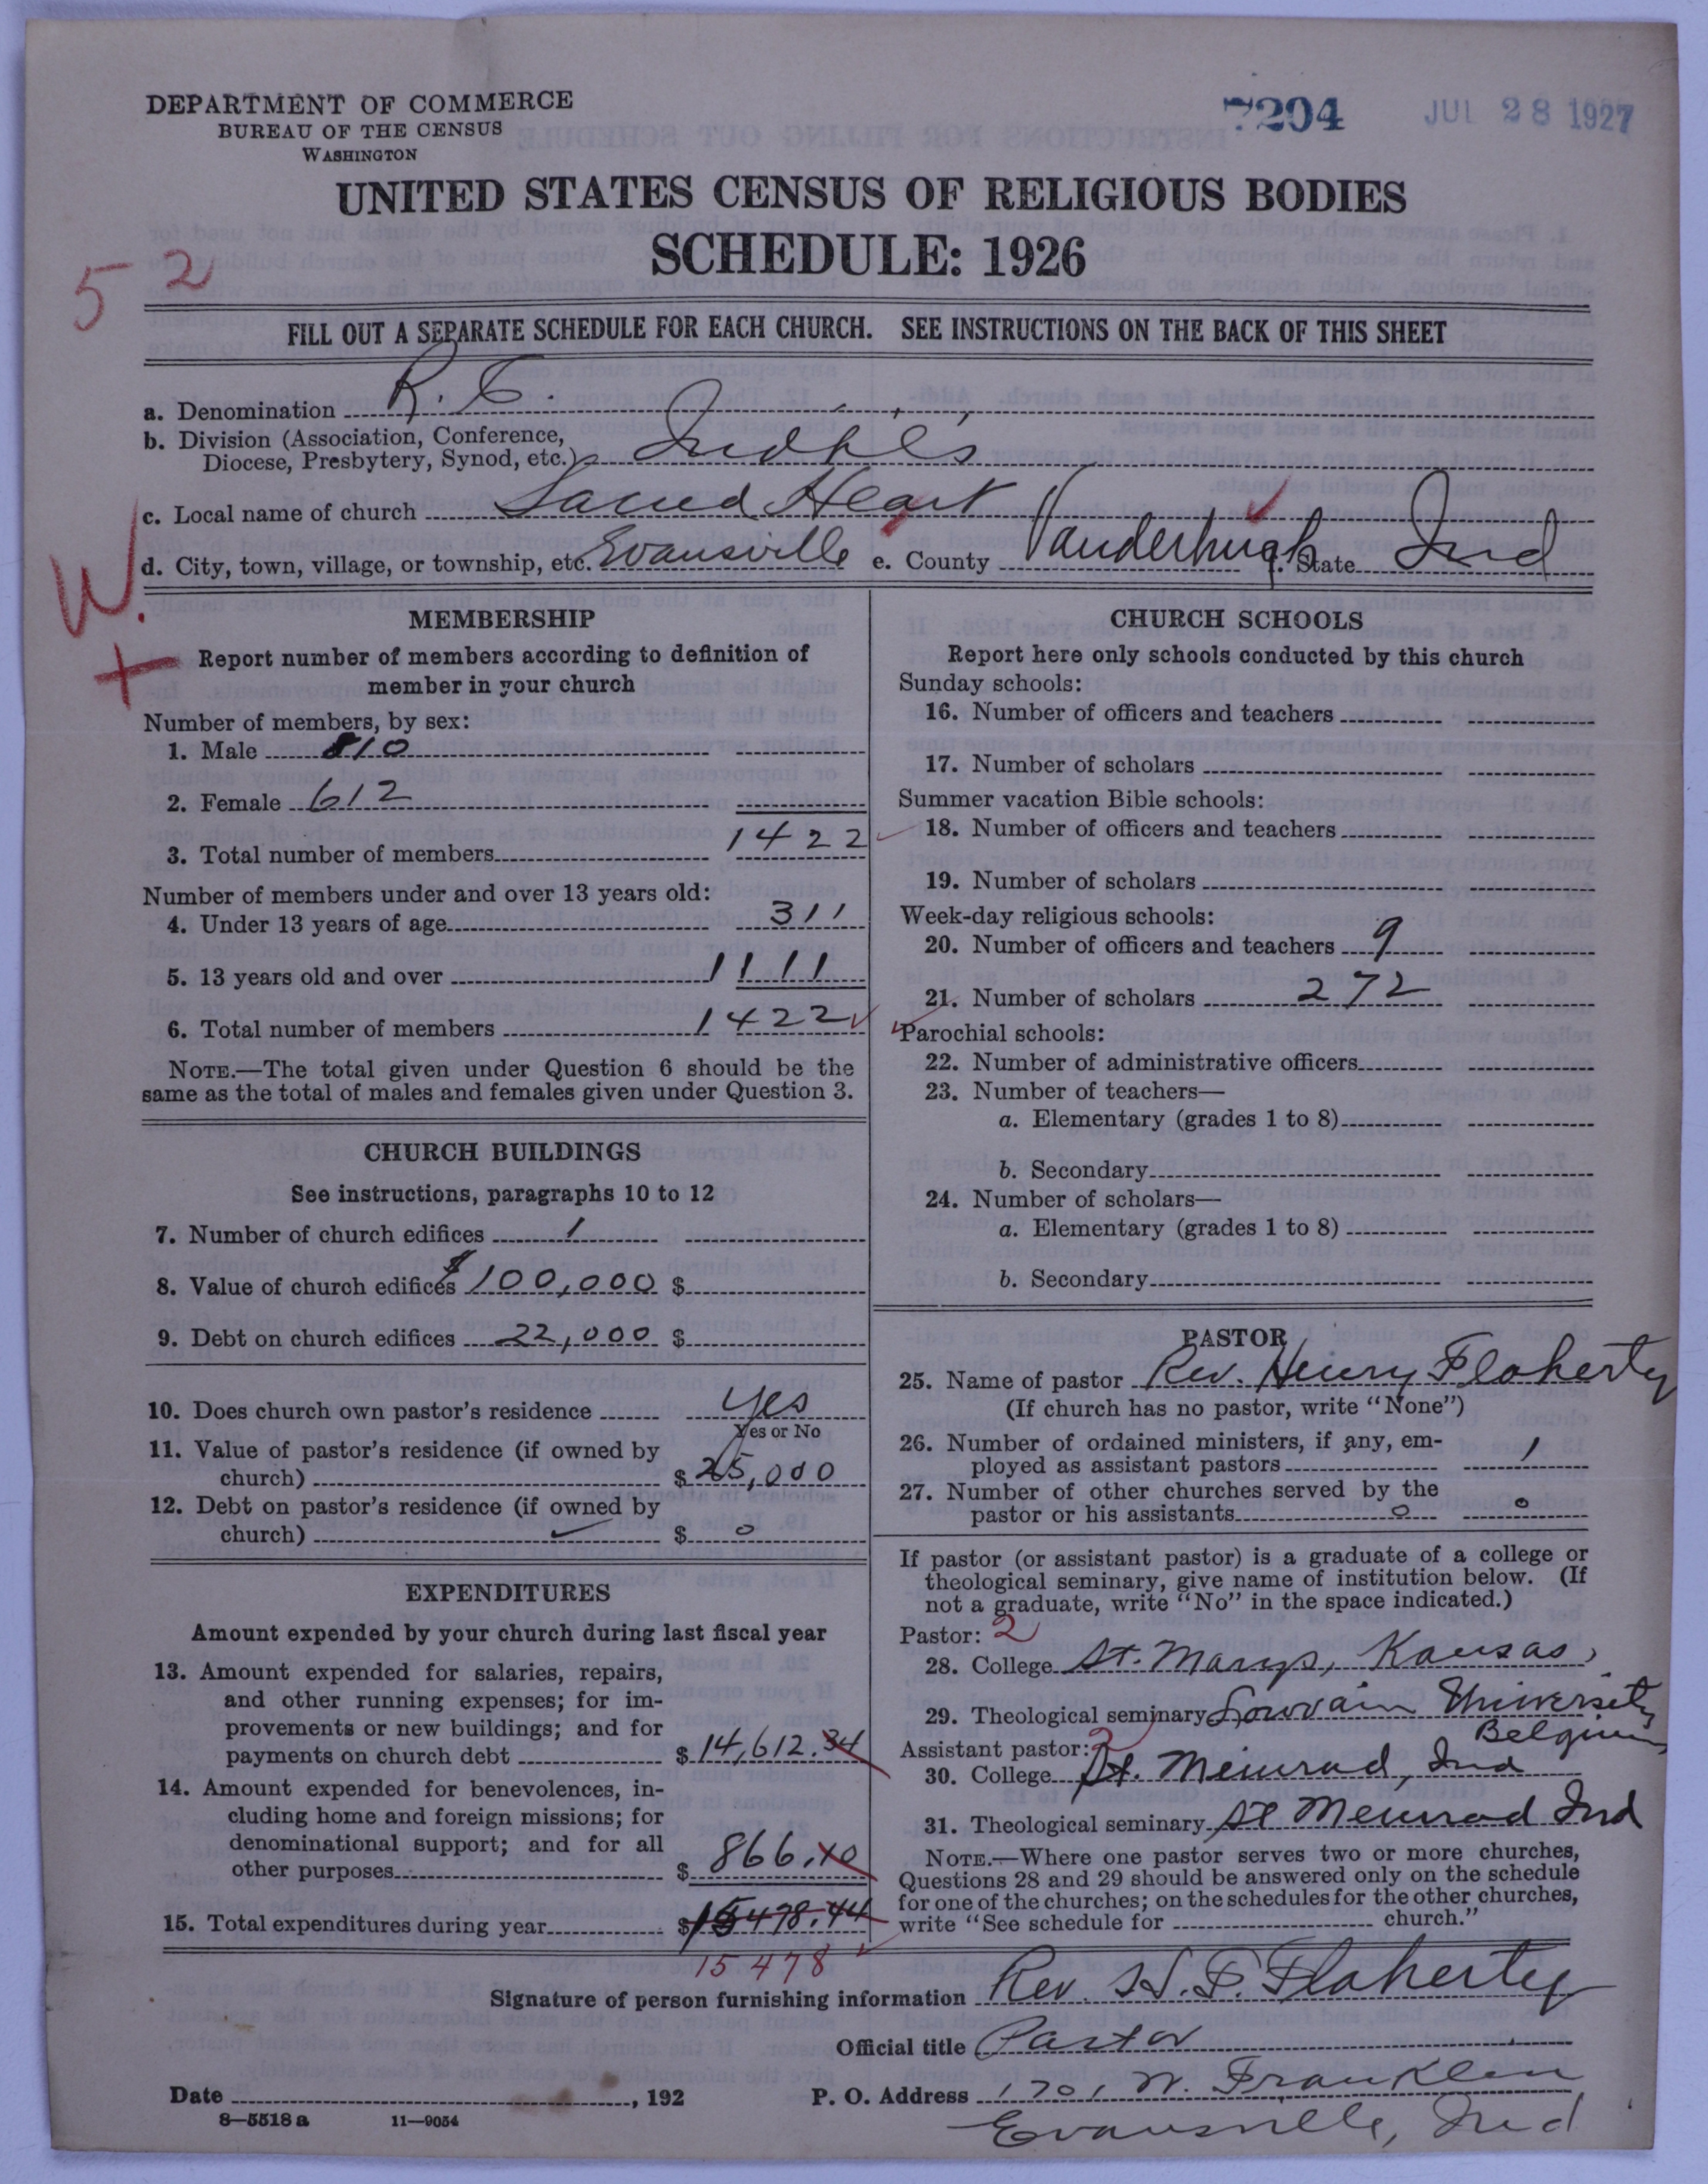 DEPARTMENT OF COMMERCE
BUREAU OF THE CENSUS
WASHINGTON
7204 JUL 28 1927
UNITED STATES CENSUS OF RELIGIOUS BODIES
SCHEDULE: 1926
52
FILL OUT A SEPARATE SCHEDULE FOR EACH CHURCH. SEE INSTRUCTIONS ON THE BACK OF THIS SHEET
a. Denomination R. C.
b. Division (Association, Conference, Diocese, Presbytery, Synod, etc.) Indpls
c. Local name of church Sacred Heart
d. City, town, village, or township, etc. Evansville e. County Vanderburgh f. State Ind
W.
+
MEMBERSHIP
Report number of members according to definition of
member in your church
Number of members, by sex:
1. Male 810
2. Female 612
3. Total number of members 1422
Number of members under and over 13 years old:
4. Under 13 years of age 311
5. 13 years old and over 1111
6. Total number of members 1422
NOTE.—The total given under Question 6 should be the
same as the total of males and females given under Question 3.
CHURCH BUILDINGS
See instructions, paragraphs 10 to 12
7. Number of church edifices 1
8. Value of church edifices $100,000 $
9. Debt on church edifices 22,000 $
10. Does church own pastor's residence Yes
Yes or No
11. Value of pastor's residence (if owned by
church) $25,000
12. Debt on pastor's residence (if owned by
church) $ 0
EXPENDITURES
Amount expended by your church during last fiscal year
13. Amount expended for salaries, repairs,
and other running expenses; for im-
provements or new buildings; and for
payments on church debt $14,612.34
14. Amount expended for benevolences, in-
cluding home and foreign missions; for
denominational support; and for all
other purposes $866.10
15. Total expenditures during year $15478.44
15478
CHURCH SCHOOLS
Report here only schools conducted by this church
Sunday schools:
16. Number of officers and teachers
17. Number of scholars
Summer vacation Bible schools:
18. Number of officers and teachers
19. Number of scholars
Week-day religious schools:
20. Number of officers and teachers 9
21. Number of scholars 272
Parochial schools:
22. Number of administrative officers
23. Number of teachers—
a. Elementary (grades 1 to 8)
b. Secondary
24. Number of scholars—
a. Elementary (grades 1 to 8)
b. Secondary
PASTOR
25. Name of pastor Rev. Henry Flaherty
(If church has no pastor, write "None")
26. Number of ordained ministers, if any, em-
ployed as assistant pastors 1
27. Number of other churches served by the
pastor or his assistants 0 0
If pastor (or assistant pastor) is a graduate of a college or
theological seminary, give name of institution below. (If
not a graduate, write "No" in the space indicated.)
Pastor: 2
28. College St. Marys, Kansas,
29. Theological seminary Louvain University
Belgium
Assistant pastor: 2
30. College St. Meinrad, Ind
31. Theological seminary St Meinrad Ind
NOTE.—Where one pastor serves two or more churches,
Questions 28 and 29 should be answered only on the schedule
for one of the churches; on the schedules for the other churches,
write "See schedule for church."
Signature of person furnishing information Rev. H. F. Flaherty
Official title Pastor
Date , 192 P. O. Address 1701 W. Franklin
8—5518 a 11—9054
Evansville, Ind